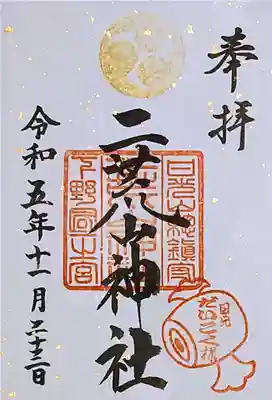 奉拝
日光山總鎮守
二荒山神社
下野國一之宮
日光
だいこく様
令和五年十一月二十三日